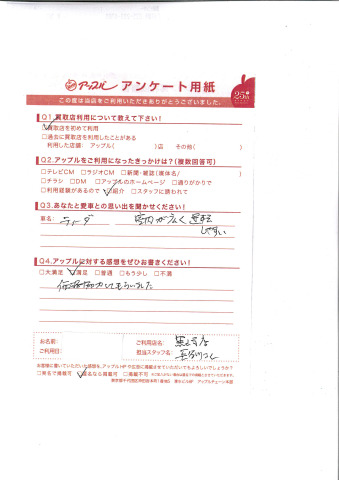 アップル アンケート用紙
25th
この度は当店をご利用いただきありがとうございました。
Q1.買取店利用について教えて下さい!
□買取店を初めて利用
□過去に買取店を利用したことがある
利用した店舗: アップル( )店 その他( )
Q2.アップルをご利用になったきっかけは?(複数回答可)
□テレビCM □ラジオCM □新聞・雑誌(媒体名/ )
□チラシ □DM □アップルのホームページ □通りがかりで
□利用経験があるので □紹介 □スタッフに誘われて
Q3.あなたと愛車との思い出を聞かせください!
車名: ラーダ 室内が広く運転
しやすい
Q4.アップルに対する感想をぜひお書きください!
□大満足 □満足 □普通 □もう少し □不満
してもらいました
お名前:
ご利用日:
ご利用店名:
担当スタッフ名:
お客様に書いていただいた感想を、アップルHPや広告に掲載させていただいてもよろしいでしょうか?
□実名で掲載可 □匿名なら掲載可 □掲載不可